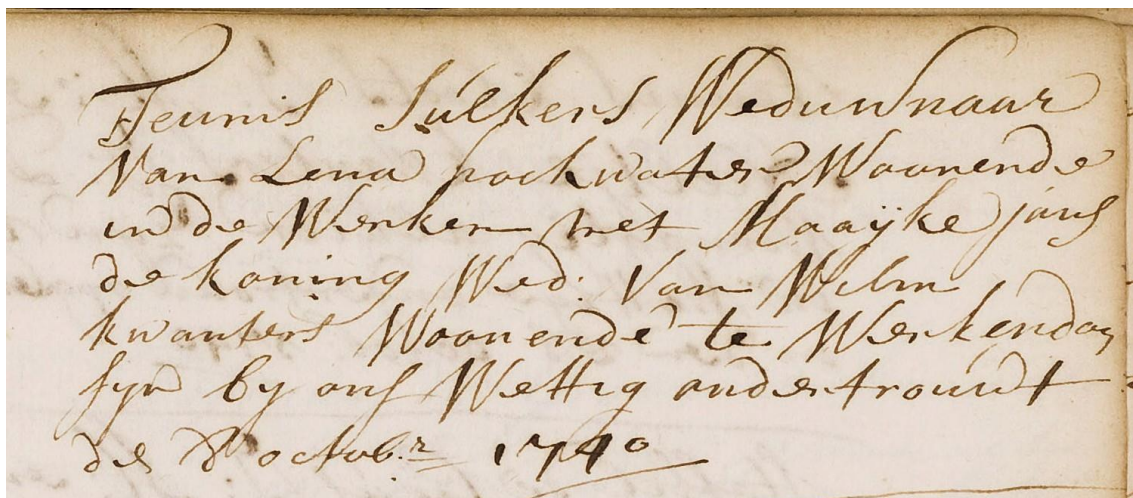 Teunis Sulkers Weduwnaar
Van Lena hoekwater Woonende
in de Werken met Maayke jans
de koning Wed: Van Wilm
kwanters Woonende te Werkendam
syn by ons Wettig ondertrouwt
de 8 octobr 1740